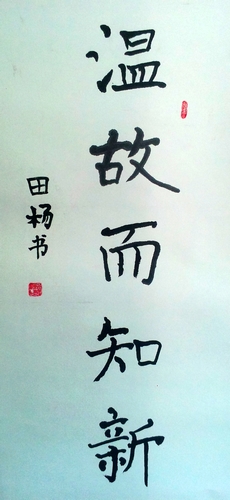 温故而知新
田杨书